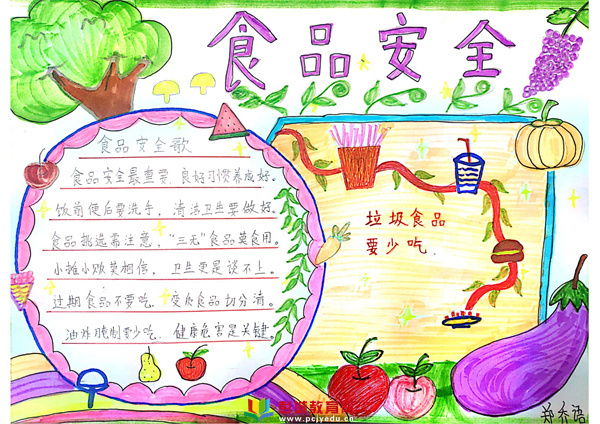 食品安全
食品安全歌
食品安全最重要,良好习惯养成好。
饭前便后要洗手,清洁卫生要做好。
食品挑选需注意,“三无”食品莫食用。
小摊小贩莫相信,卫生更是谈不上。
过期食品不要吃,变质食品切分清。
油炸腌制要少吃,健康危害是关键。
垃圾食品
要少吃
www.pcjyedu.cn
郑乔语